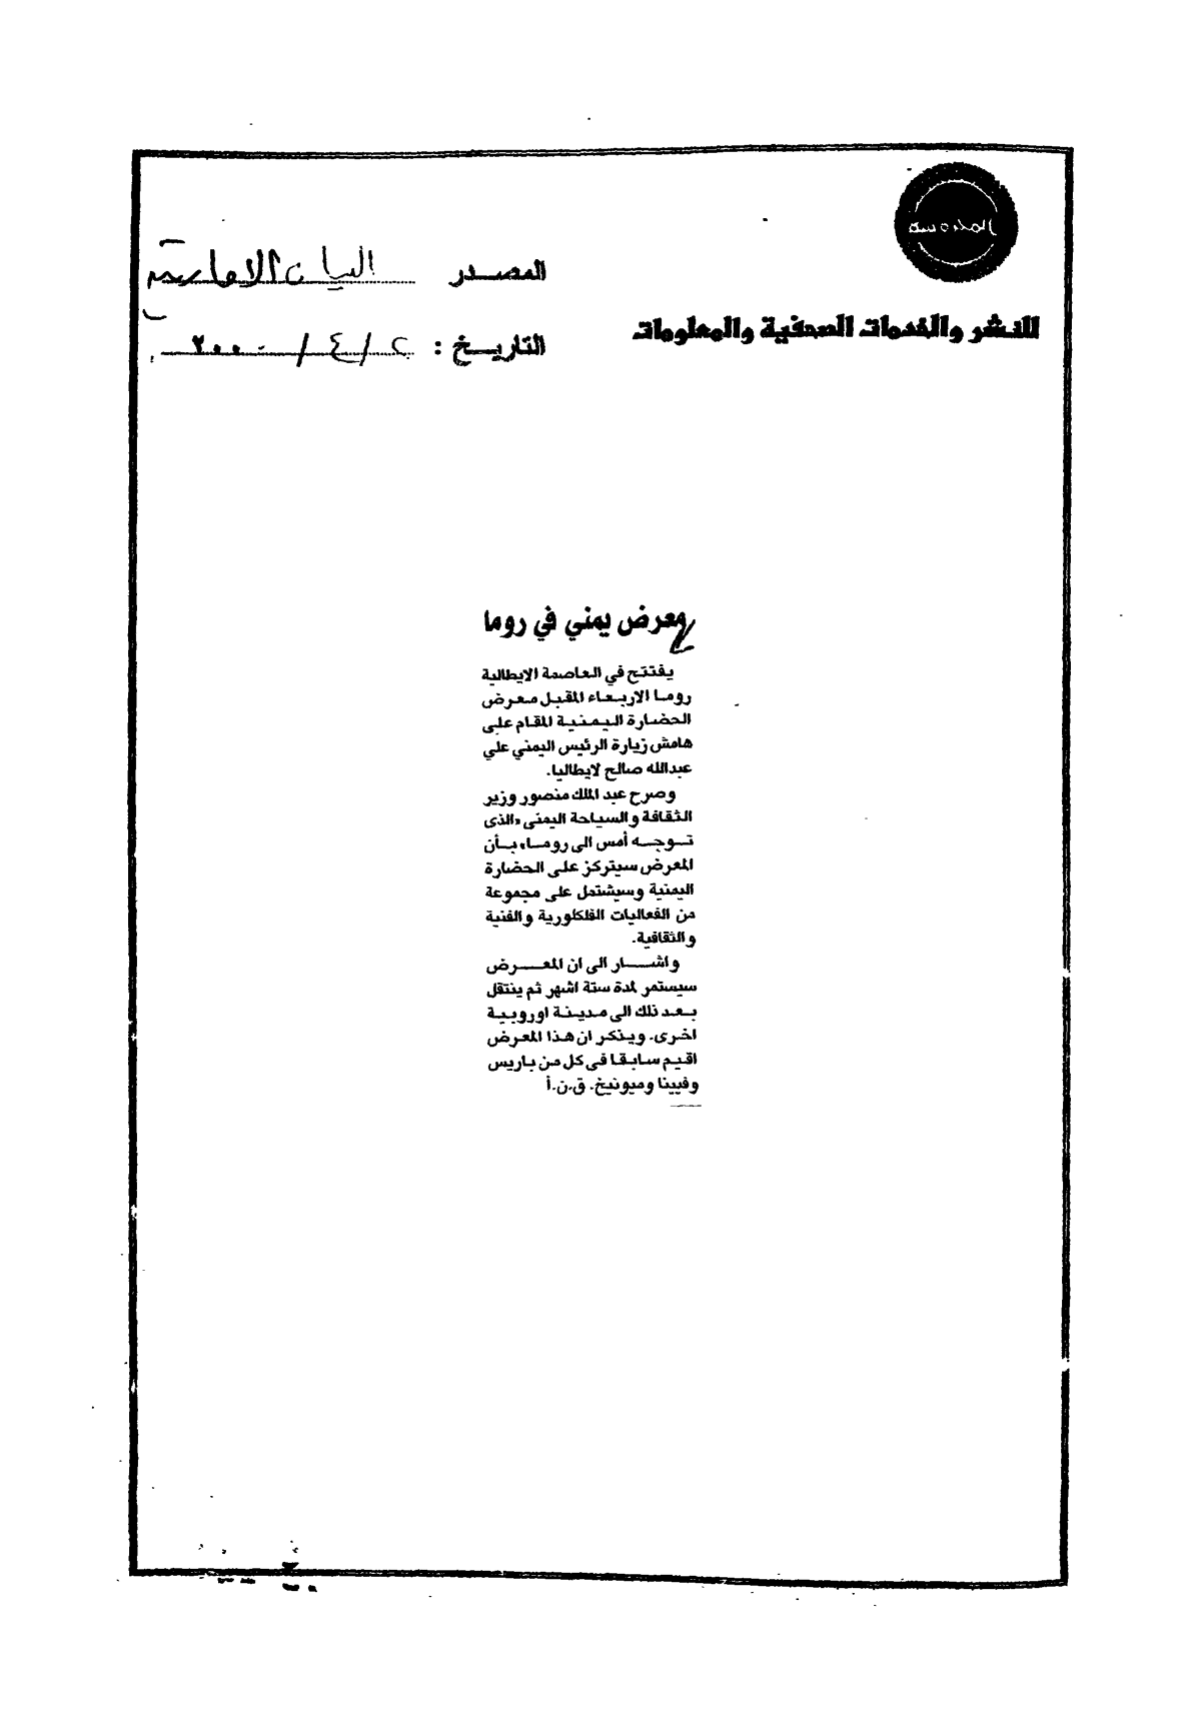 المصدر البيان الاماراتية
للنشر والخدمات الصحفية والمعلومات
التاريخ : ٢ / ٤ / ٢٠٠٠
معرض يمني في روما
يفتتح في العاصمة الايطالية
روما الاربعاء المقبل معرض
الحضارة اليمنية المقام على
هامش زيارة الرئيس اليمني علي
عبدالله صالح لايطاليا.
وصرح عبد الملك منصور وزير
الثقافة والسياحة اليمنى «الذى
توجه أمس الى روما» بأن
المعرض سيتركز على الحضارة
اليمنية وسيشتمل على مجموعة
من الفعاليات الفلكلورية والفنية
والثقافية.
واشار الى ان المعرض
سيستمر لمدة ستة اشهر ثم ينتقل
بعد ذلك الى مدينة اوروبية
اخرى. ويذكر ان هذا المعرض
اقيم سابقا فى كل من باريس
وفيينا وميونيخ. ق.ن.أ